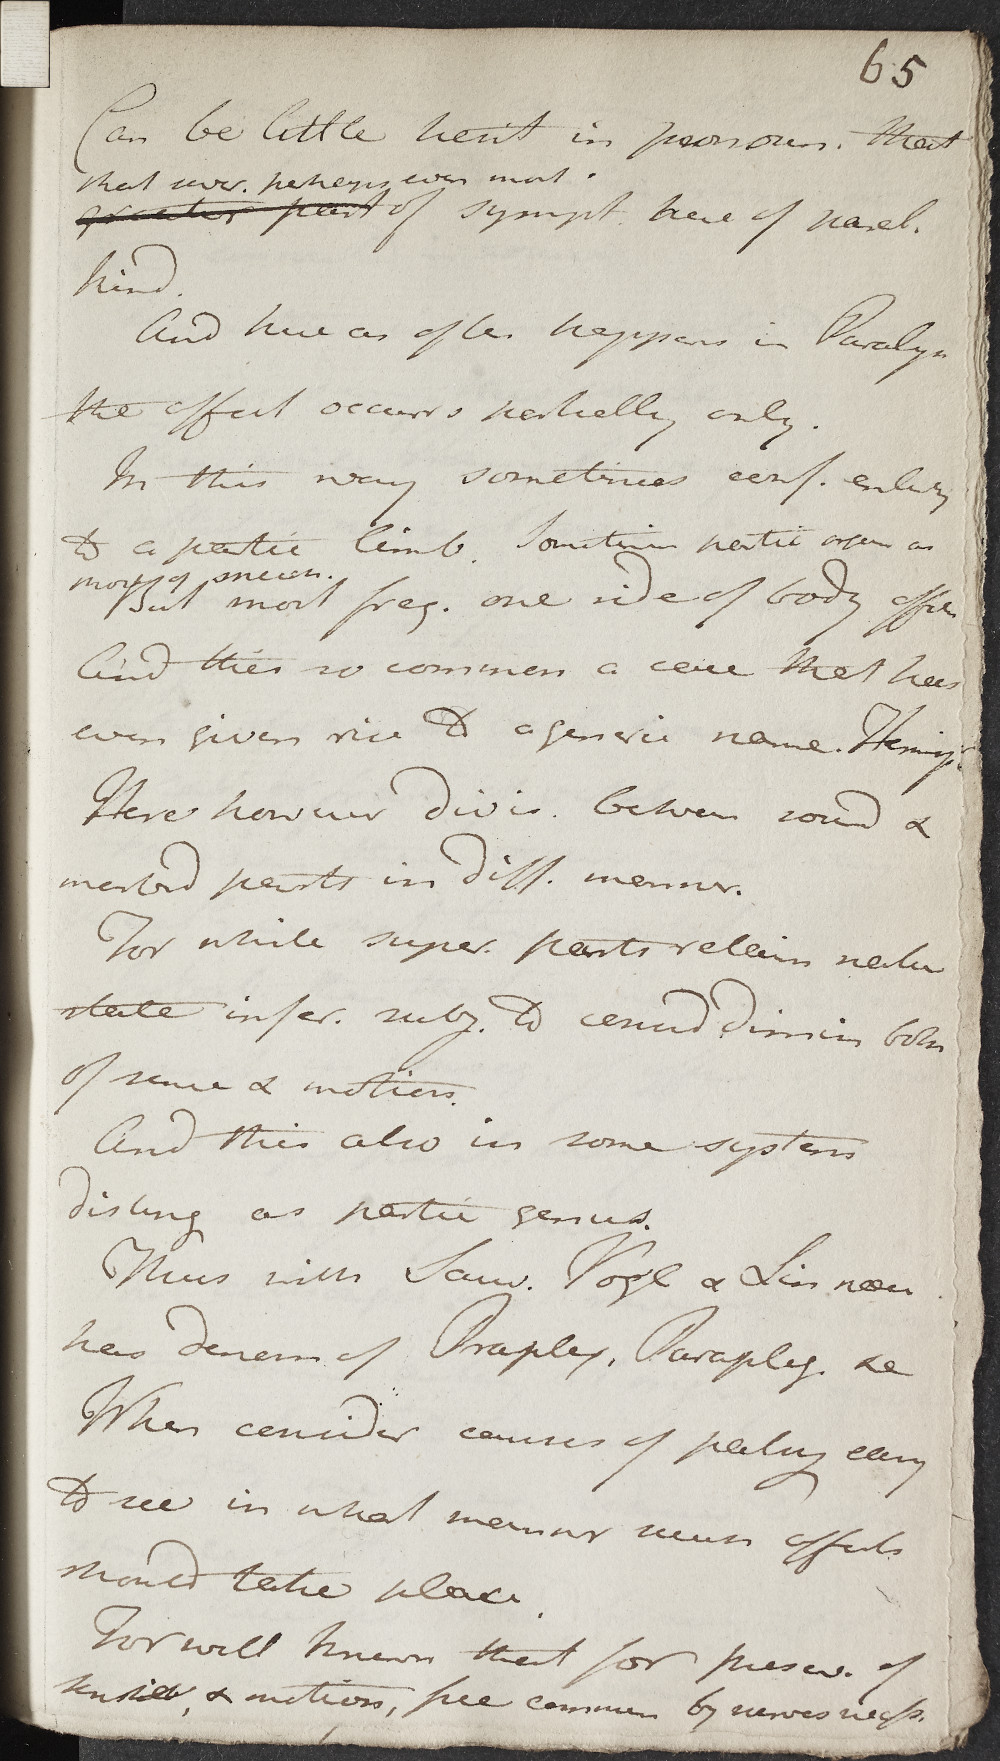 65
Can be little hesit in pronoun. that
that sever. perhaps even most
greater part of sympt. here of paral.
kind.
And here as often happens in Paralys
the effect occurrs partially only.
In this way sometimes conf. entirely
to a partic limb. Sometimes partic organ as
But most freq. one side of body affec
And this so common a case that has
even given rise to a generic name. Hemip
Here however divis. between sound &
morbid parts in diff. manner.
For while super. parts retain natu
state infer. subj. to considr dimin both
of sense & motion.
And this also in some systems
disting as partic genus.
Thus with Sauv. Vogl & Linnæu
has denom of Paraplex, Parapleg. &c
When consider causes of palsy easy
to see in what manner such effects
should take place.
For well known that for preserv. of
sensib, & motion, free commun by nerves necess.